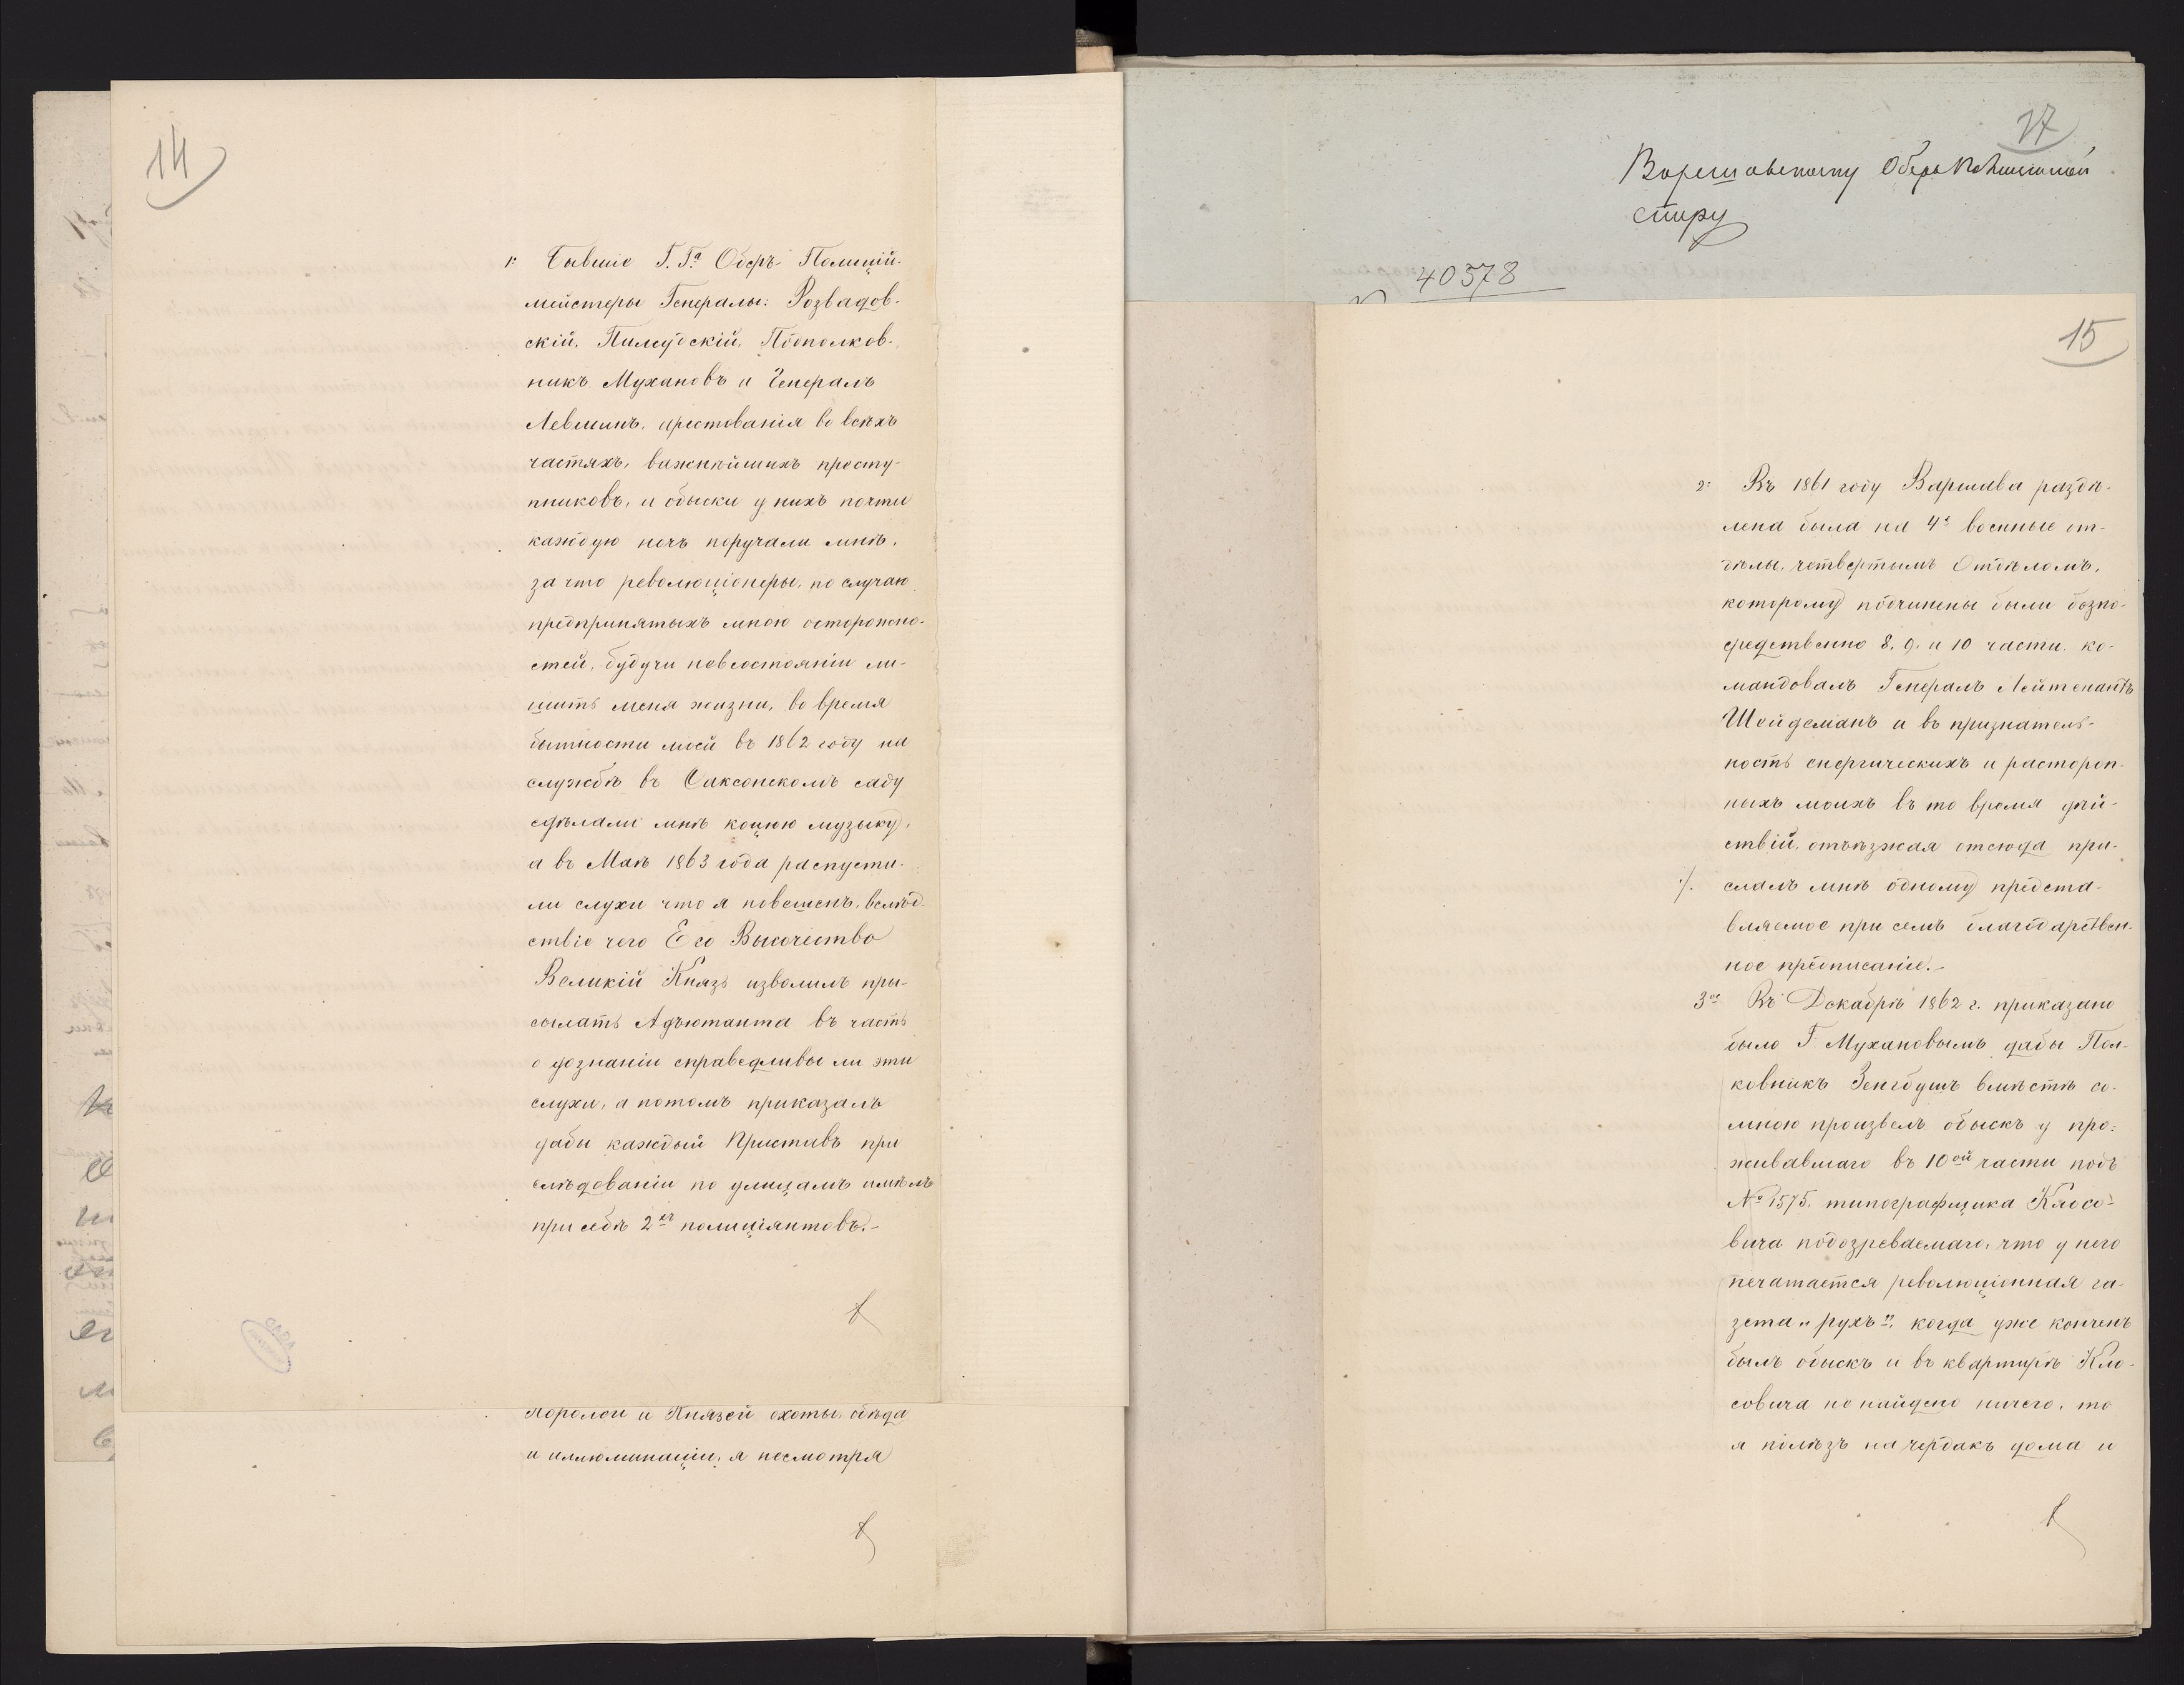 14
1. Бывшіе Г. Г.а Оберъ Полицій-
мейстеры Генералы: Розвадов-
скій, Пилсудскій, Подполков-
никъ Мухановъ и Генералъ
Левшинъ, арестованія во всѣхъ
частяхъ, важнѣйшихъ престу-
пниковъ, и обыски у нихъ почти
каждую ночь поручали мнѣ,
за что революціонеры, по случаю
предпринятыхъ мною осторожно-
стей, будучи невсостояніи ли-
шить меня жизни, во время
бытности моей въ 1862 году на
службѣ въ Саксонскомъ саду
сдѣлали мнѣ коцюю музыку,
а въ Маѣ 1863 года распусти-
ли слухи что я повешенъ, вслѣд-
ствіе чего Его Высочество
Великій Князь изволилъ при-
сылать Адъютанта въ часть
о дознаніи справедливы ли эти
слухи, а потомъ приказалъ
дабы каждый Приставъ при
слѣдованіи по улицамъ имѣлъ
при себѣ 2хъ полиціянтовъ.-
Королей и Князей охоты, обѣда
и иллюминаціи, я несмотря
17
Варшавскому Оберъ Полицмей
стеру
40578
15
2. Въ 1861 году Варшава раздѣ-
лена была на 4е военные от-
дѣлы, четвертымъ Отдѣломъ,
которому подчинены были безпо-
средственно 8, 9 и 10 части, ко-
мандовалъ Генералъ Лейтенантъ
Шейдеманъ и въ признатель-
ность енергическихъ и растороп-
ныхъ моихъ въ то время дѣй-
ствій, отъѣзжая отсюда при-
./. слалъ мнѣ одному предста-
вляемое при семъ благодарствен-
ное предписаніе.-
3ее Въ Декабрѣ 1862 г. приказано
было Г. Мухановымъ дабы Пол-
ковникъ Зенгбушъ вмѣстѣ со-
мною произвелъ обыскъ у про-
живавшаго въ 10ой части подъ
№ 1575, типографщика Клосо-
вича подозреваемаго, что у него
печатается революціонная га-
зета „рухъ", когда уже конченъ
былъ обыскъ и въ квартирѣ Кло-
совича не найдено ничего, то
я полѣзъ на чердакъ дома и